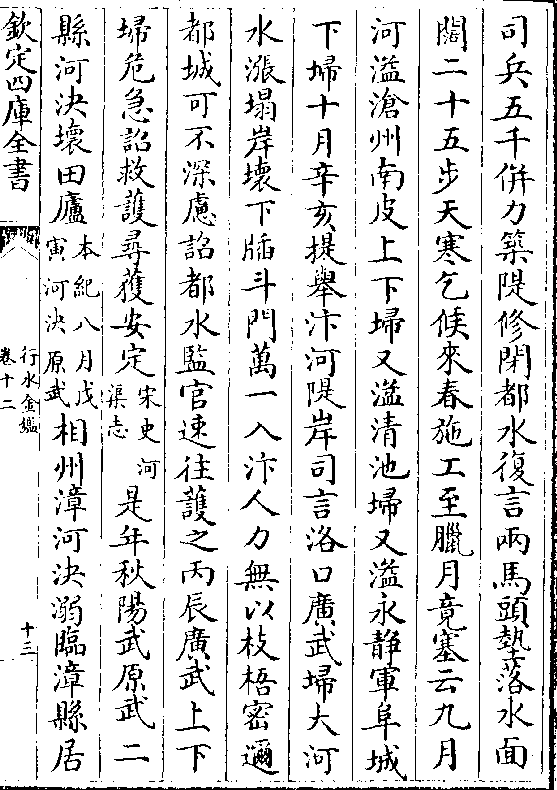 司兵五千併力築隄修閉都水復言兩馬頭墊落水面
闊二十五步天寒乞候來春施工至臘月竟塞云九月
河溢滄州南皮上下埽又溢清池埽又溢永静軍阜城
下埽十月辛亥提舉汴河隄岸司言洛口廣武埽大河
水漲塌岸壊下牐斗門萬一入汴人力無以枝梧密邇
都城可不深慮詔都水監官速往䕶之丙辰廣武上下
埽危急詔救䕶尋獲安定宋史河渠志是年秋陽武原武二
縣河決壊田廬本紀八月戊寅河決原武相州漳河決溺臨漳縣居
欽定四庫全書
行水金鑑
卷十二
十三